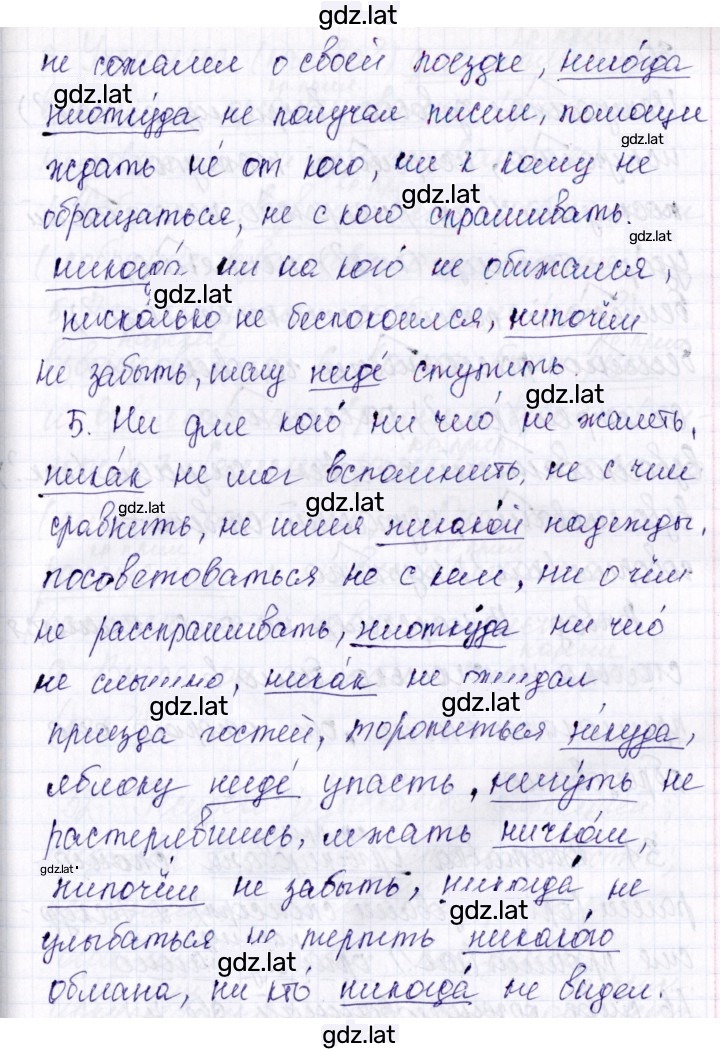 gdz.lat
не сожалел о своей поездке, никогда
gdz.lat
ниоткуда не получал писем, помощи
gdz.lat
ждать не от кого, ни к кому не
gdz.lat
обращаться, не с кого спрашивать.
gdz.lat
никогда ни на кого не обижался,
gdz.lat
нисколько не беспокоился, нипочём
не забыть, шагу негде ступить
gdz.lat
5. Ни для кого ни чего не жалеть,
никак не мог вспомнить, не с чем
gdz.lat
gdz.lat
сравнить, не имея никакой надежды,
gdz.lat
посоветоваться не с кем, ни о чём
не расспрашивать, ниоткуда ни чего
gdz.lat
не слышно, никак не ожидал
gdz.lat
приезда гостей, торопиться некуда,
gdz.lat
яблоку негде упасть, ничуть не
растерявшись, лежать ничком,
gdz.lat
gdz.lat
нипочём не забыть, никогда не
gdz.lat
улыбаться не терпеть никакого
gdz.lat
обмана, ни кто никогда не видел.
gdz.lat